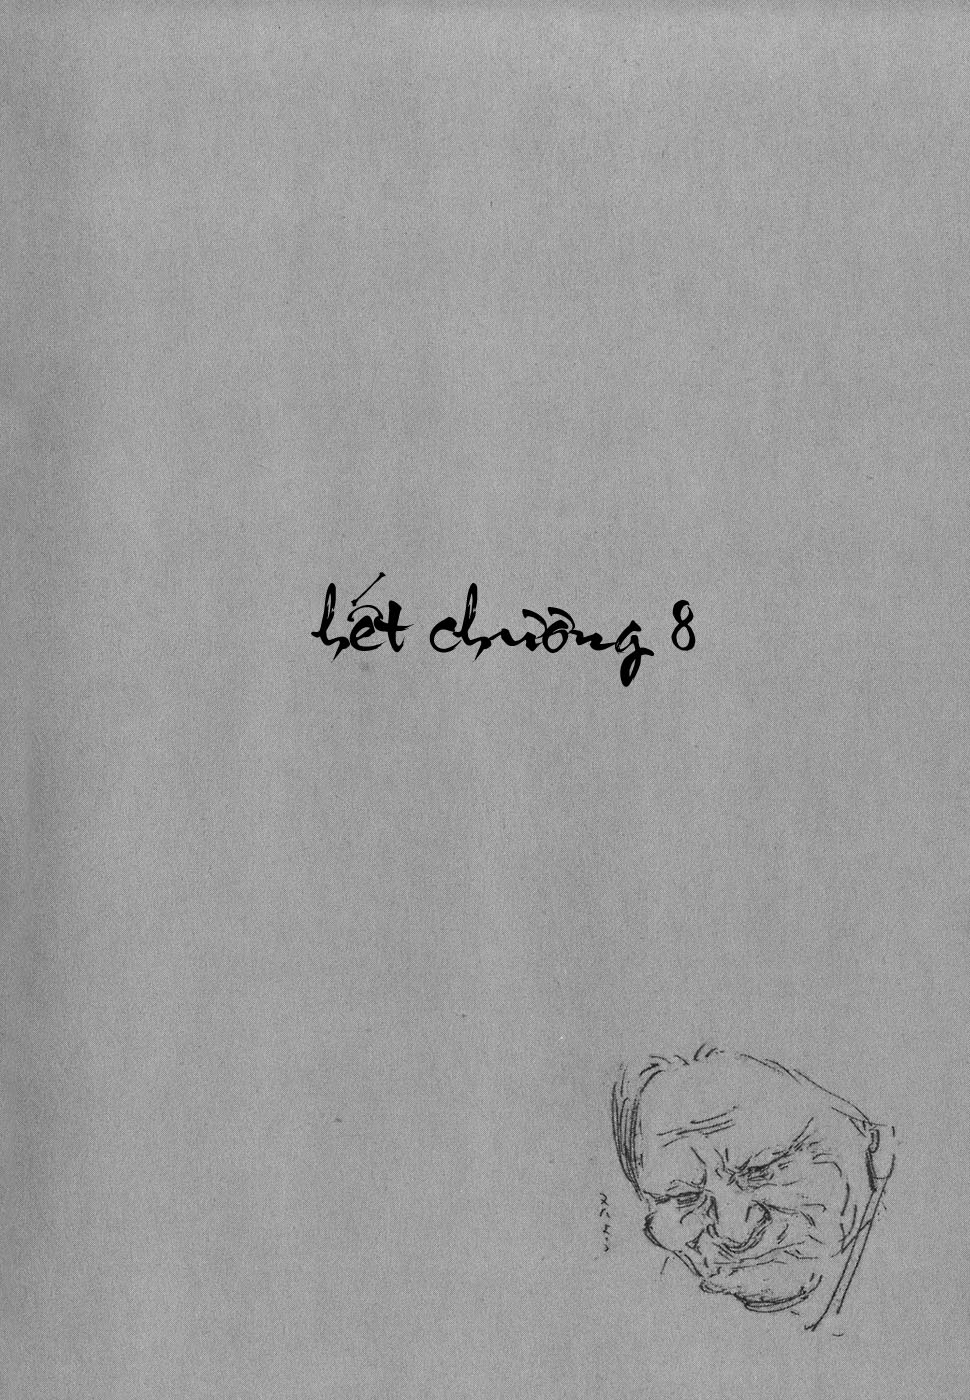 hết chương 8